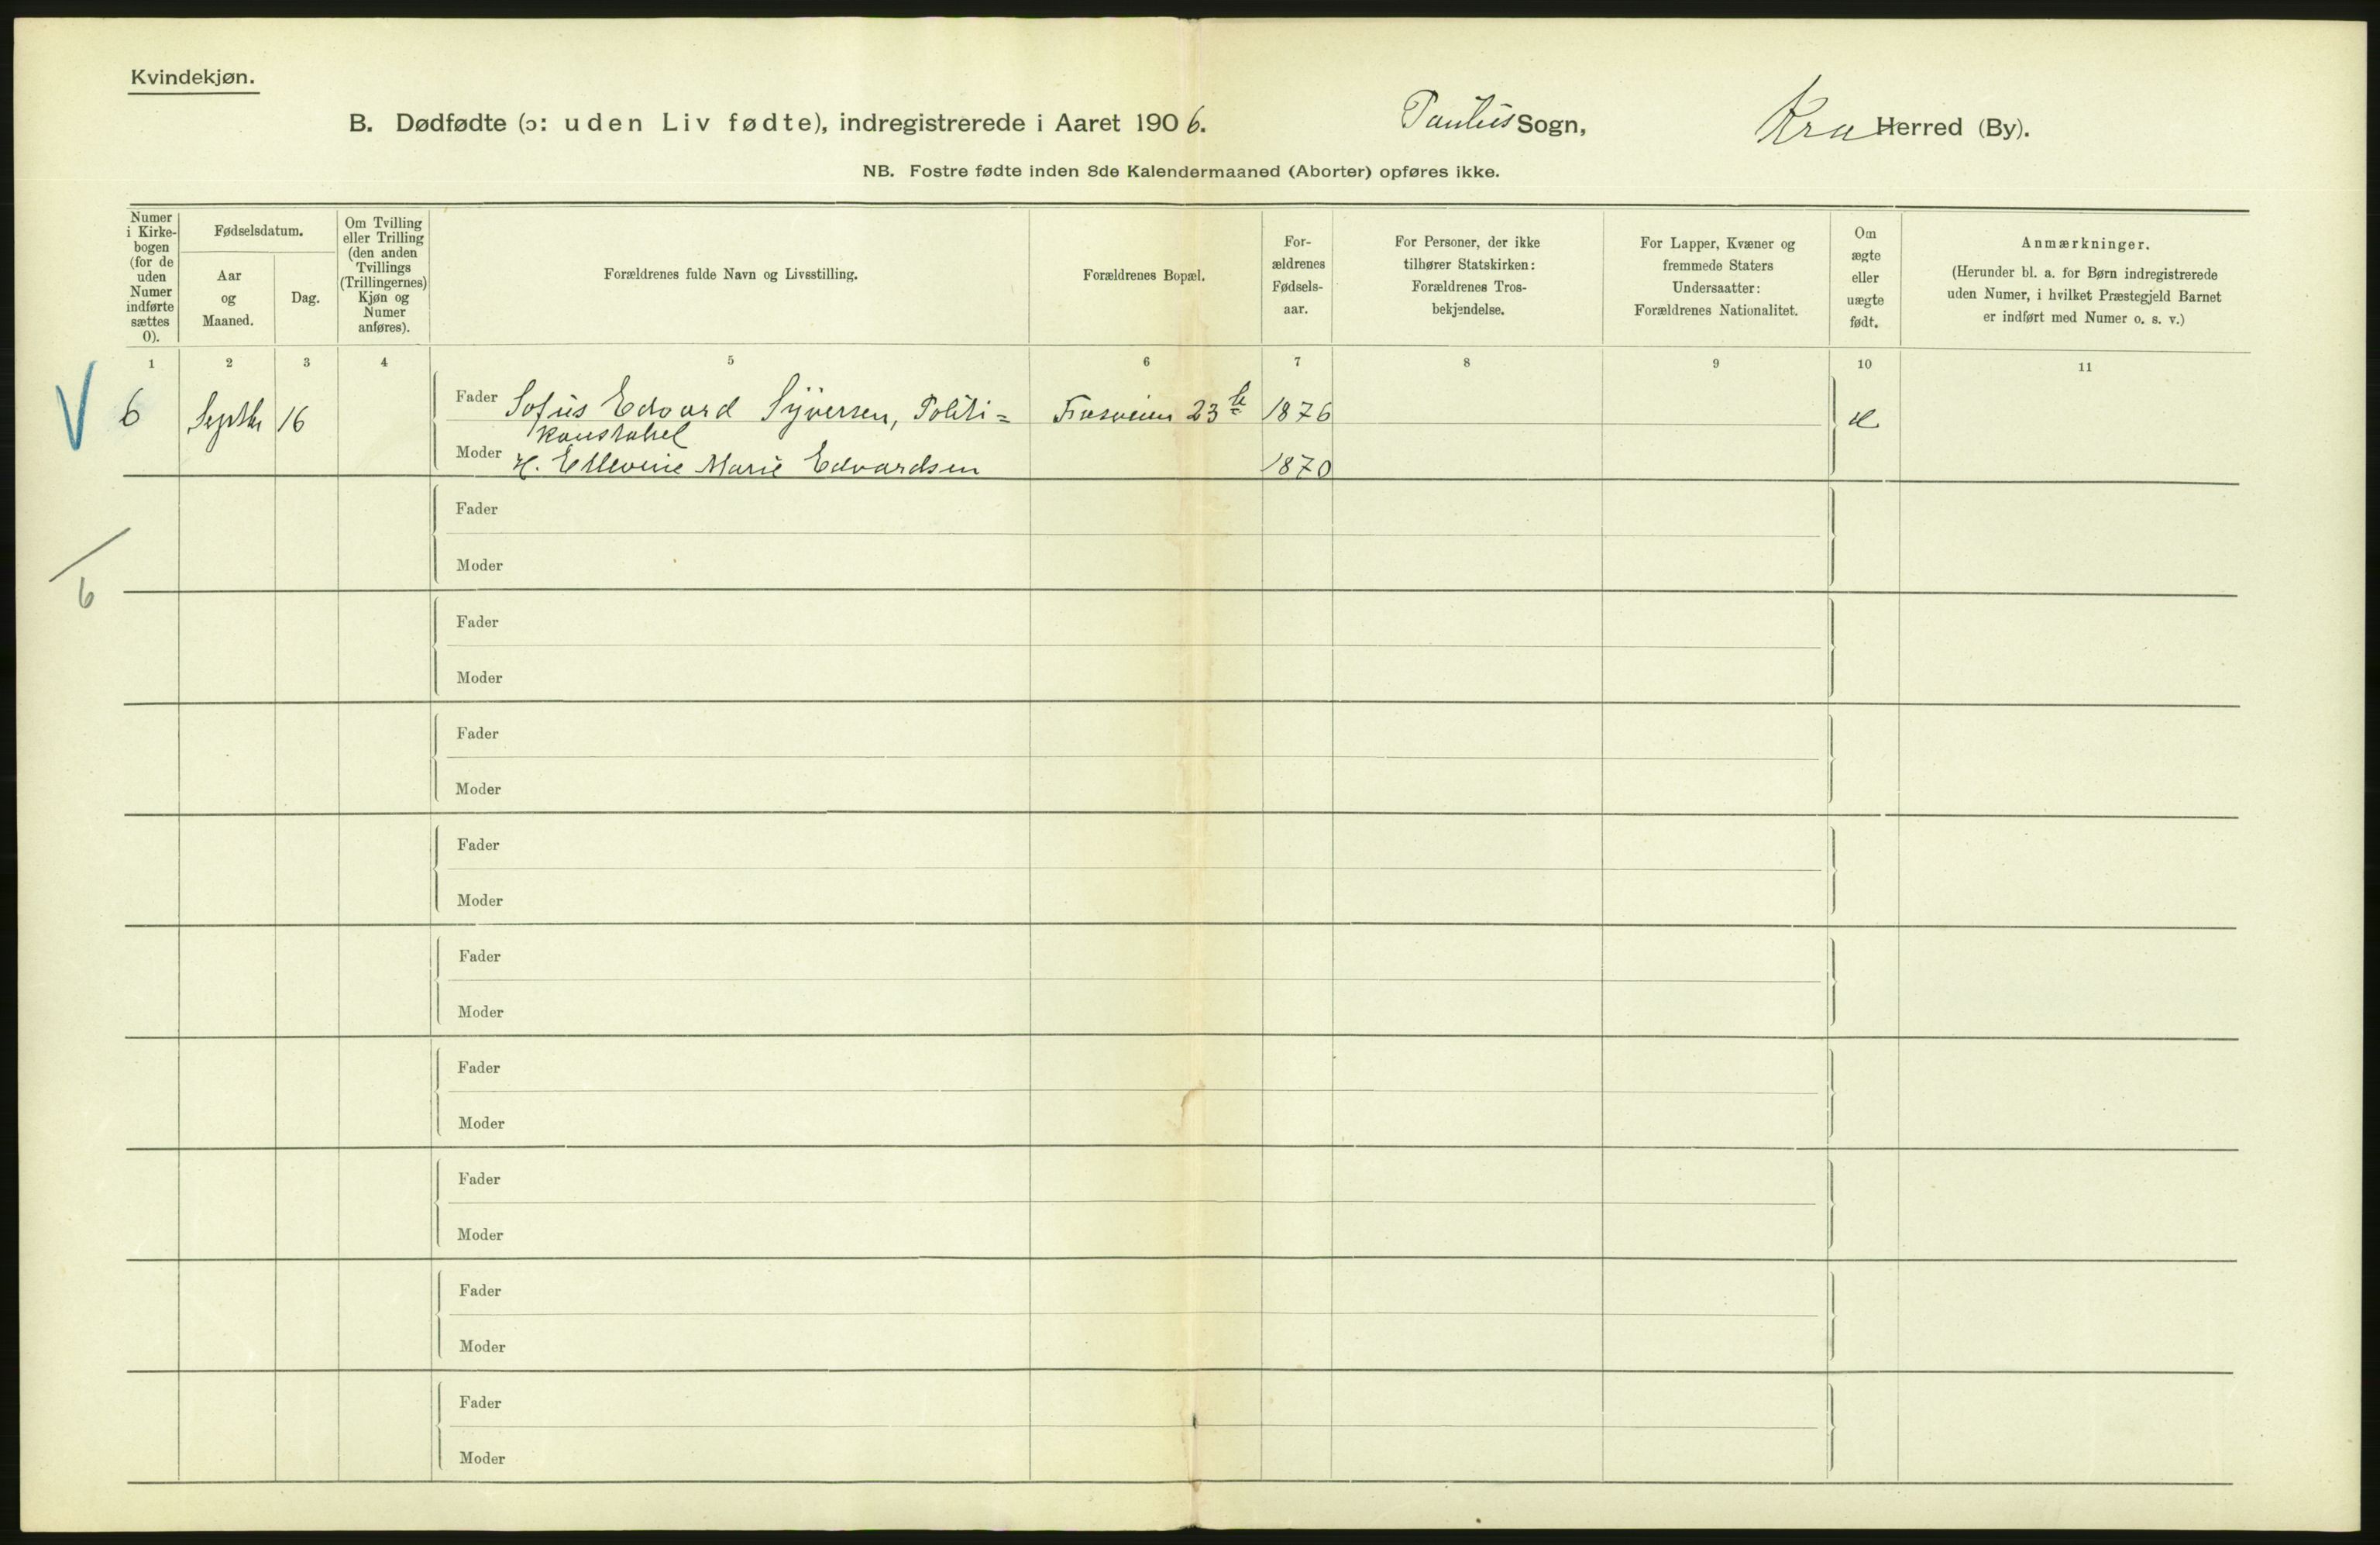 Kvindekjøn.
B. Dødfødte (ɔ: uden Liv fødte), indregistrerede i Aaret 1906. Paulus Sogn, Kra Herred (By).
NB. Fostre fødte inden 8de Kalendermaaned (Aborter) opføres ikke.
Numer
i Kirke-
bogen
(for de
uden
Numer
indførte
sættes
0).
Fødselsdatum.
Aar
og
Maaned.
Dag.
Om Tvilling
eller Trilling
(den anden
Tvillings
(Trillingernes)
Kjøn og
Numer
anføres).
Forældrenes fulde Navn og Livsstilling.
Forældrenes Bopæl.
For-
ældrenes
Fødsels-
aar.
For Personer, der ikke
tilhører Statskirken:
Forældrenes Tros-
bekjendelse.
For Lapper, Kvæner og
fremmede Staters
Undersaatter:
Forældrenes Nationalitet.
Om
ægte
eller
uægte
født.
Anmærkninger.
(Herunder bl. a. for Børn indregistrerede
uden Numer, i hvilket Præstegjeld Barnet
er indført med Numer o. s. v.)
1 2 3 4 5 6 7 8 9 10 11
V 6 Septbr 16 Fader Sofus Edvard Syversen, Politi= 23 b 1876
konstabel
Moder H. Marie Edvardsen 1870
Fader
Moder
6
Fader
Moder
Fader
Moder
Fader
Moder
Fader
Moder
Fader
Moder
Fader
Moder
Fader
Moder
Fader
Moder